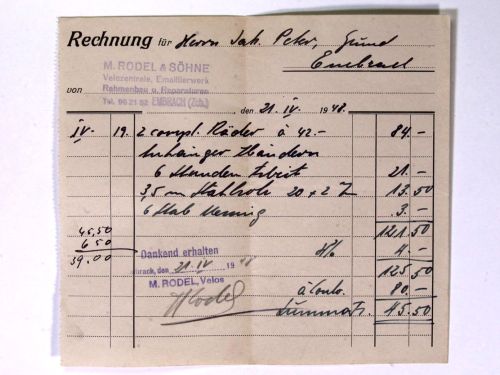 Rechnung für Herrn Jak. Peter, Gmünd
Embrach
M. RODEL & SÖHNE
Velozentrale, Emaillierwerk
Rahmenbau u. Reparaturen
von
Tel. 96 21 52 EMBRACH (Zch.)
, den 21. IV. 1948.
IV. 19. 2 compl. Räder à 42.— 84.—
Anhänger
6 Stunden Arbeit 21.—
3,5 m Stahlrohr 20 x 2 13.50
6 Stab 3.—
45,50 121.50
6 50 4.—
39.00
Dankend erhalten
Embrach, den 21. IV 1948
125.50
M. RODEL, Velos
à Conto. 80.—
Rodel
45.50